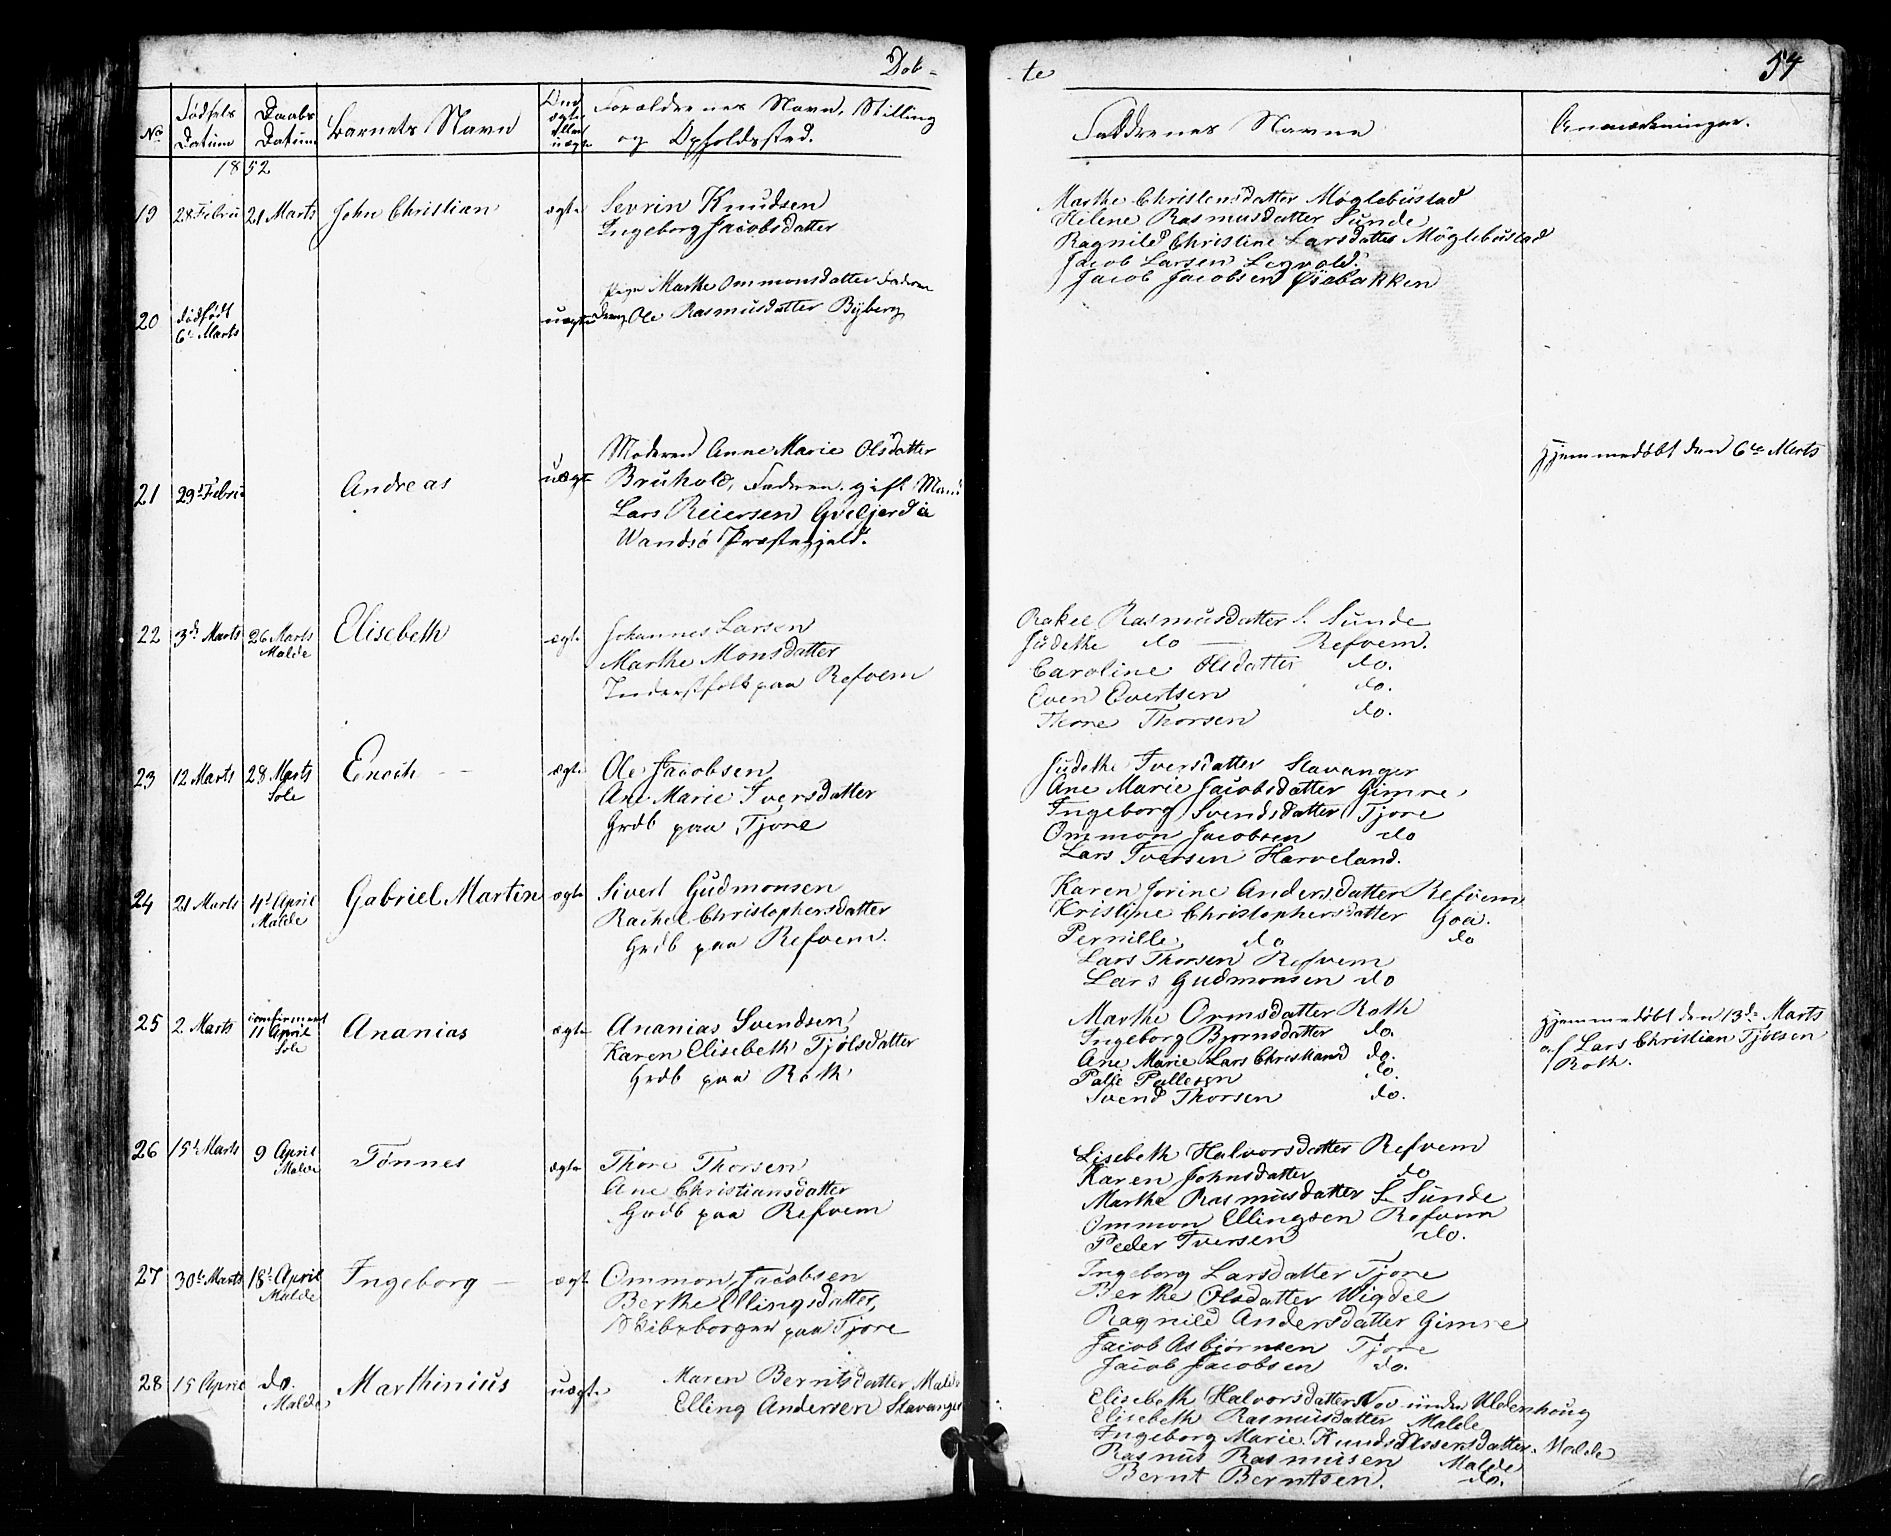 Dob-
No
Fødsels Datum
Daabs Datum
Barnets Navn
ægte uægte
Forældrenes Navn, Stilling og Opholdssted.
1852
19 28 Febru 21 Marts John Christian ægte
Sevrin Knudsen
Ingeborg Jacobsdatter
20 dødfødt 6te Marts uægte
Pige Marthe Ommonsdatter Faderen
Ole Rasmusdatter Byberg
21 29d Febru Andreas uægte
Moderen Anne Marie Olsdatter
Bruhold, Faderen gift Mand
Lars Reiersen
Præstegjeld.
22 3d Marts 26 Marts Malde Elisebeth ægte
Johannes Larsen
Marthe Monsdatter
Inderstfolk paa Refvem
23 12 Marts 28 Marts Sole Enoch ægte
Ole Jacobsen
Ane Marie Iversdatter
Grdb paa Tjore
24 21 Marts 4d April Malde Gabriel Martin ægte
Sivert Gudmonsen
Rachel Christophersdatter
Grdb paa Refvem.
25 2 Marts confirmert 11 April Sole Ananias ægte
Ananias Svendsen
Karen Elisebeth Tjølsdatter
Grdb paa Roth
26 15d Marts 9 April Malde Tønnes ægte
Thore Thorsen
Ane Christiansdatter
Grdb paa Refvem
27 30d Marts 18d April Malde Ingeborg ægt
Ommon Jacobsen
Berthe Ellingsdatter,
paa Tjore
28 15 April do. Malde Marthinius uægte
Maren Berntsdatter Malde
Elling Andersen Stavanger
te
54
Faddrenes Navne
Anmerkninger.
Marthe Christensdatter Møglebustad
Helene Rasmusdatter Sunde
Ragnild Christine Larsdatter Møglebustad
Jacob Larsen
Jacob Jacobsen
Hjemmedøbt den 6te Marts
Rakel Rasmusdatter S. Sunde
Judethe do — Refvem.
Caroline Olsdatter do.
Even Evertsen do.
Thore Thorsen do.
Judethe Iversdatter Stavanger
Ane Marie Jacobsdatter Gimre
Ingeborg Svendsdatter Tjore
Ommon Jacobsen do
Lars Iversen Harveland.
Karen Jorine Andersdatter Refvem
Kristine Christophersdatter Goa.
Pernille do do
Lars Thorsen Refvem
Lars Gudmonsen do
Marthe Ormsdatter Roth
Ingeborg Bjornsdatter do.
Ane Marie Lars Christiand do.
Palle Pallesen do.
Svend Thorsen do.
Hjemmedøbt den 13de Marts
af Lars Christian Tjølsen
Roth.
Lisebeth Halvorsdatter Refvem
Karen Johnsdatter do
Marthe Rasmusdatter S. Sunde
Ommon Ellingsen Refvem
Peder Iversen do.
Ingeborg Larsdatter Tjore
Berthe Olsdatter Wigdel
Ragnild Andersdatter Gimre
Jacob Asbjørnsen Tjore
Jacob Jacobsen do.
Elisebeth Halvorsdatter
Elisebeth Rasmusdatter Malde
Ingeborg Marie Malde
Rasmus Rasmusen Malde
Bernt Berntsen. do.